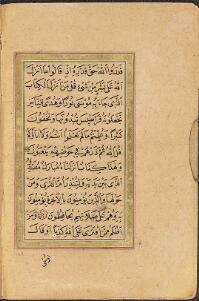 قدروا الله حق قدره اذ قالوا ما انزل
الله على بشر من شىء قل من انزل الكتاب
الذى جاء به موسى نورا وهدى للناس
تجعلونه قراطيس تبدونها وتخفون
كثيرا وعلمتم ما لم تعلموا انتم ولا اباؤكم
قل الله ثم ذرهم فى خوضهم يلعبون
وهذا كتاب انزلناه مبارك مصدق
الذى بين يديه ولتنذر ام القرى ومن
حولها والذين يؤمنون بالاخرة يؤمنون
به وهم على صلاتهم يحافظون ومن
اظلم ممن افترى على الله كذبا او قال